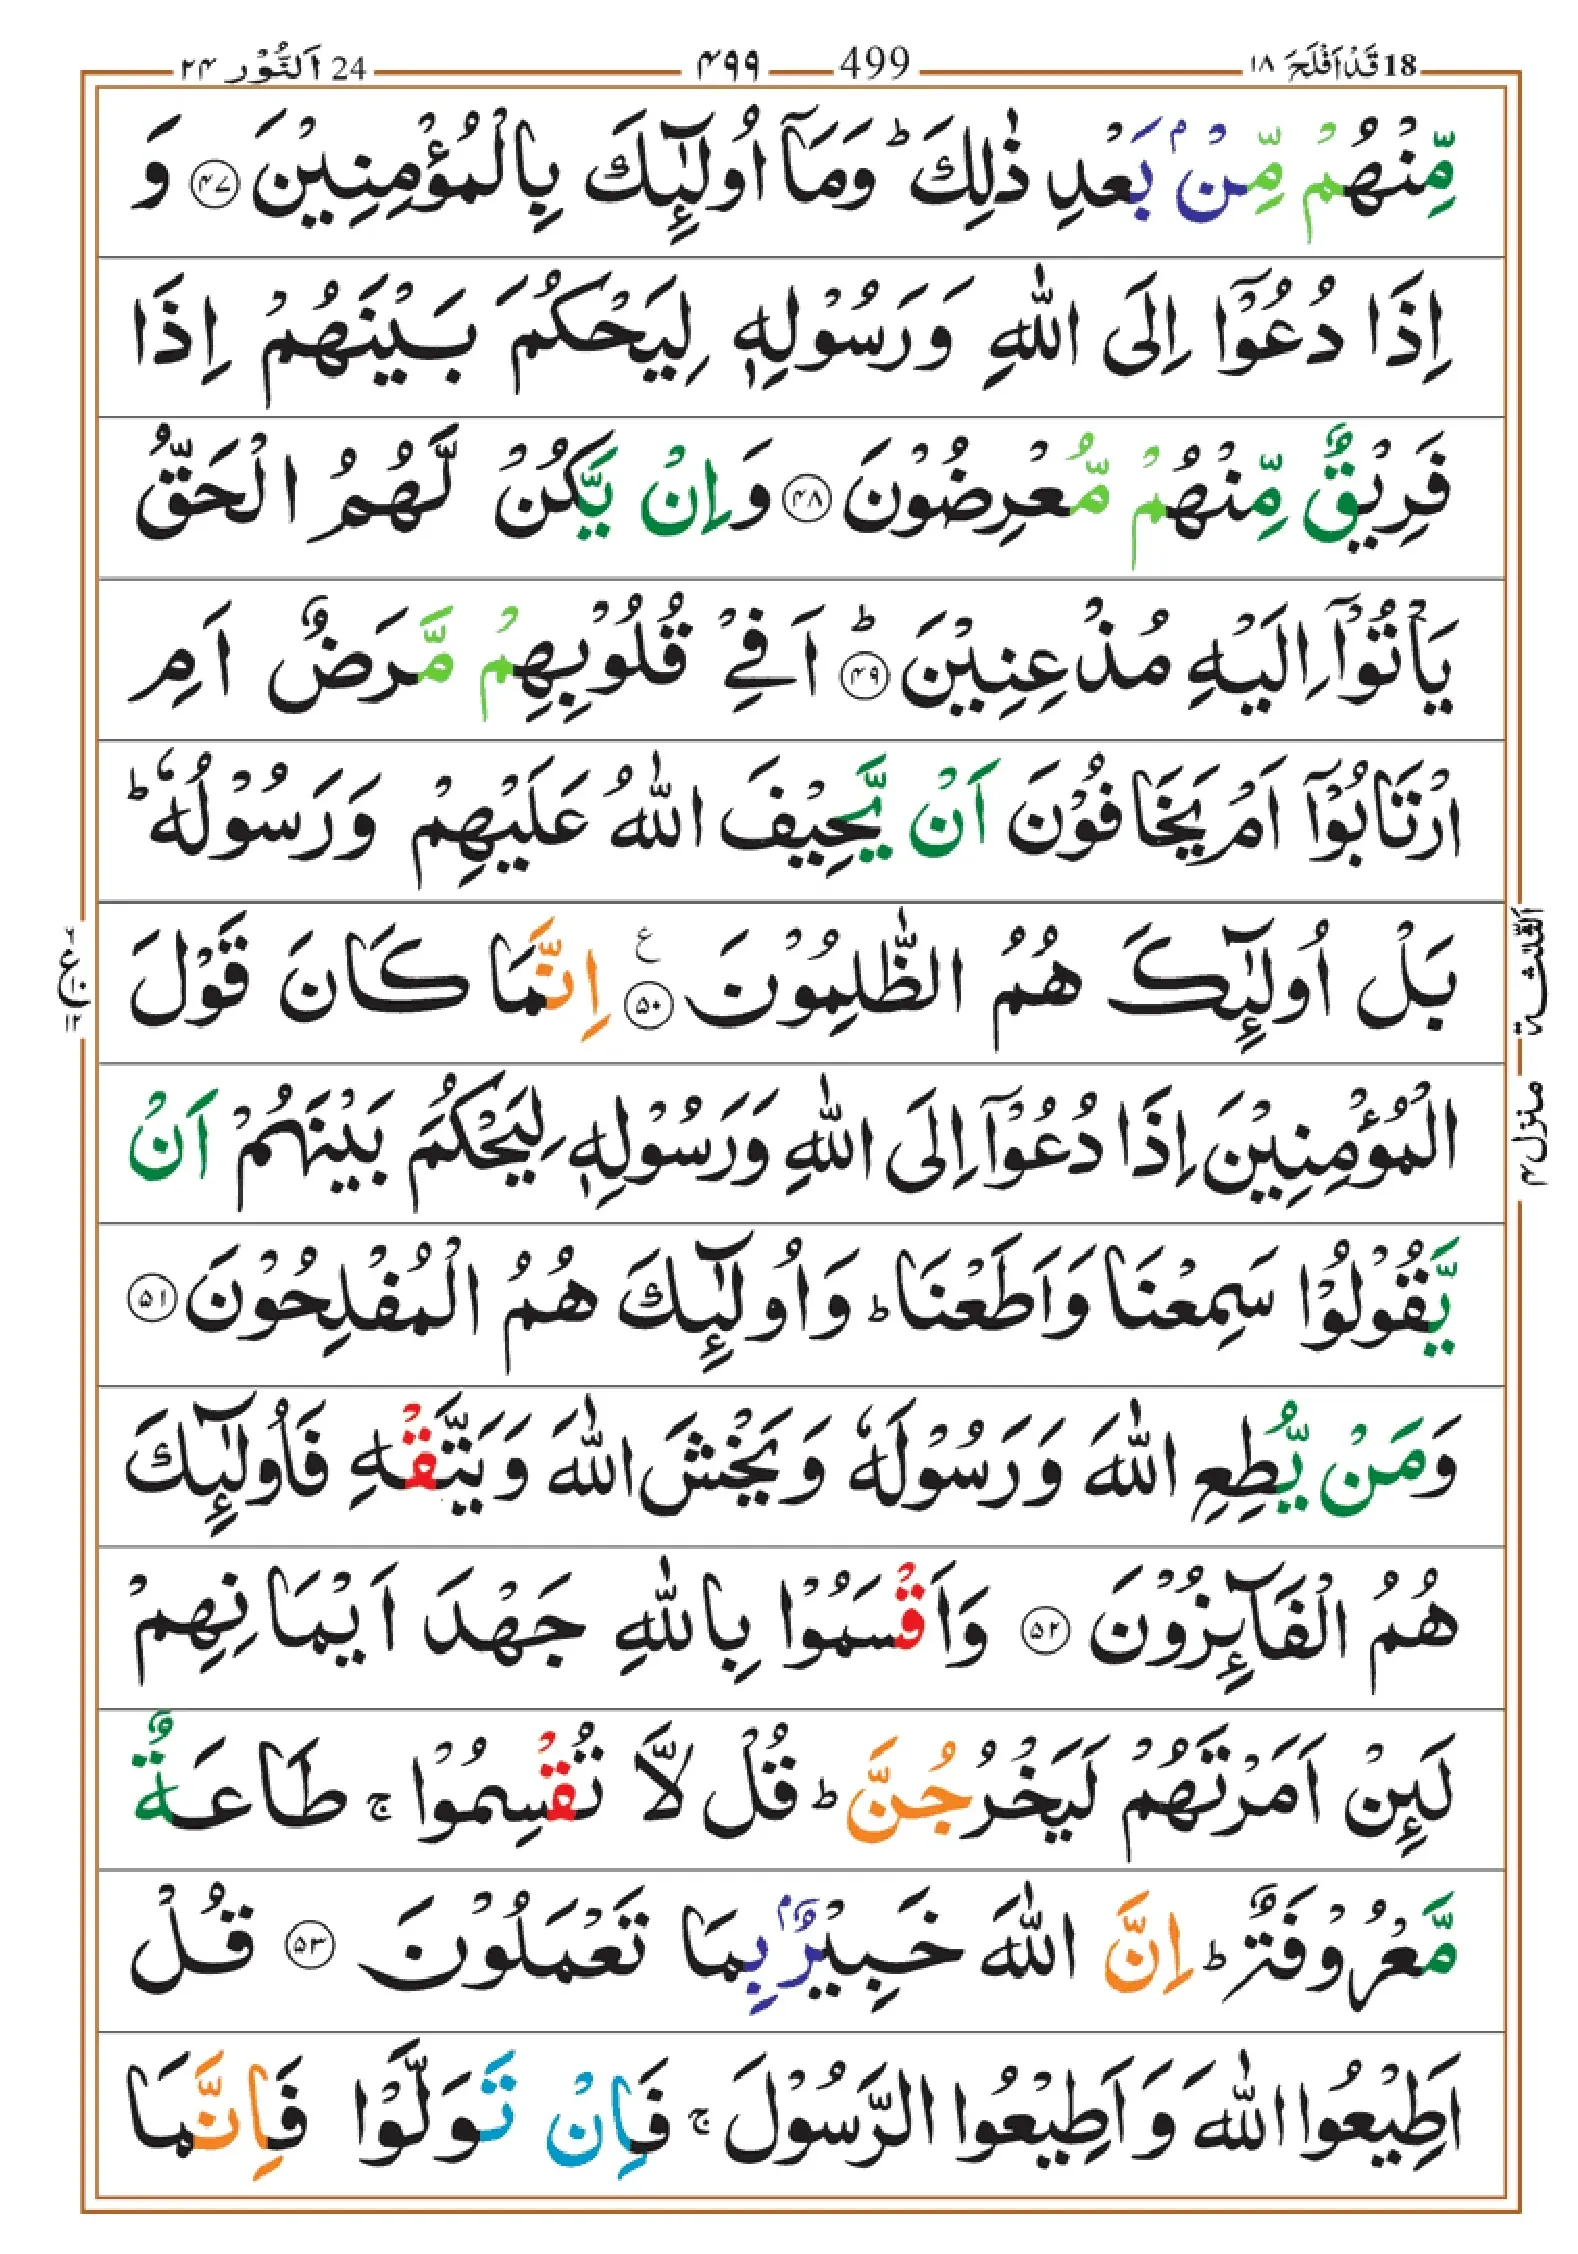 18 قَدْ اَفْلَحَ ١٨
499 ۴۹۹
24 اَلنُّوْر ۲۴
مِّنْهُمْ مِّنْۢ بَعْدِ ذٰلِكَ ؕ وَمَاۤ اُولٰٓئِكَ بِالْمُؤْمِنِيْنَ ﴿۴۷﴾ وَ
اِذَا دُعُوْۤا اِلَى اللّٰهِ وَرَسُوْلِهٖ لِيَحْكُمَ بَيْنَهُمْ اِذَا
فَرِيْقٌ مِّنْهُمْ مُّعْرِضُوْنَ ﴿۴۸﴾ وَاِنْ يَّكُنْ لَّهُمُ الْحَقُّ
يَاْتُوْۤا اِلَيْهِ مُذْعِنِيْنَ ؕ﴿۴۹﴾ اَفِيْ قُلُوْبِهِمْ مَّرَضٌ اَمِ
ارْتَابُوْۤا اَمْ يَخَافُوْنَ اَنْ يَّحِيْفَ اللّٰهُ عَلَيْهِمْ وَرَسُوْلُهٗ ؕ
بَلْ اُولٰٓئِكَ هُمُ الظّٰلِمُوْنَ ﴿۵۰﴾ ع اِنَّمَا كَانَ قَوْلَ
الْمُؤْمِنِيْنَ اِذَا دُعُوْۤا اِلَى اللّٰهِ وَرَسُوْلِهٖ لِيَحْكُمَ بَيْنَهُمْ اَنْ
يَّقُوْلُوْا سَمِعْنَا وَاَطَعْنَا ؕ وَاُولٰٓئِكَ هُمُ الْمُفْلِحُوْنَ ﴿۵۱﴾
وَمَنْ يُّطِعِ اللّٰهَ وَرَسُوْلَهٗ وَيَخْشَ اللّٰهَ وَيَتَّقْهِ فَاُولٰٓئِكَ
هُمُ الْفَآئِزُوْنَ ﴿۵۲﴾ وَاَقْسَمُوْا بِاللّٰهِ جَهْدَ اَيْمَانِهِمْ
لَئِنْ اَمَرْتَهُمْ لَيَخْرُجُنَّ ؕ قُلْ لَّا تُقْسِمُوْا ۚ طَاعَةٌ
مَّعْرُوْفَةٌ ؕ اِنَّ اللّٰهَ خَبِيْرٌۢ بِمَا تَعْمَلُوْنَ ﴿۵۳﴾ قُلْ
اَطِيْعُوا اللّٰهَ وَاَطِيْعُوا الرَّسُوْلَ ۚ فَاِنْ تَوَلَّوْا فَاِنَّمَا
اَلثُّلٰثَة
منزل ۴
۶
ع
۱۰
۱۲